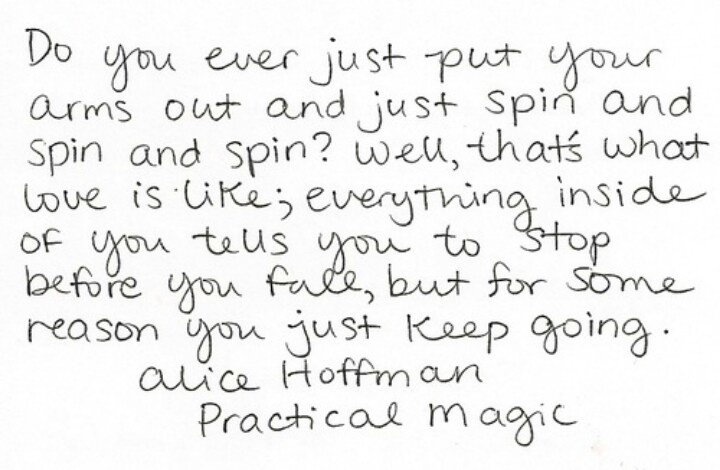 Do you ever just put your
arms out and just spin and
spin and spin? Well, that's what
love is like; everything inside
of you tells you to stop
before you fall, but for some
reason you just keep going.
Alice Hoffman
Practical Magic